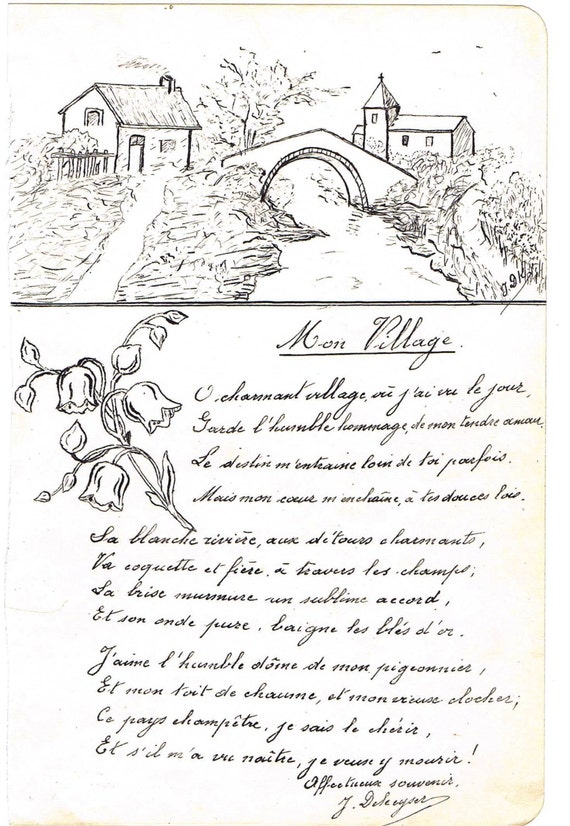 J. D.
Mon Village.
O charmant village, où j'ai vu le jour,
Garde l'humble hommage, de mon tendre amour.
Le destin m'entraine loin de toi parfois.
Mais mon cœur m'enchaîne, à tes douces lois.
Sa blanche rivière, aux détours charmants,
Va coquette et fière, à travers les champs;
La brise murmure un sublime accord,
Et son onde pure, baigne les blés d'or.
J'aime l'humble dôme de mon pigeonnier,
Et mon toit de chaume, et mon vieux clocher;
Ce pays champêtre, je sais le chérir,
Et s'il m'a vu naître, je veux y mourir!
Affectueux souvenir.
J. Dekeyser